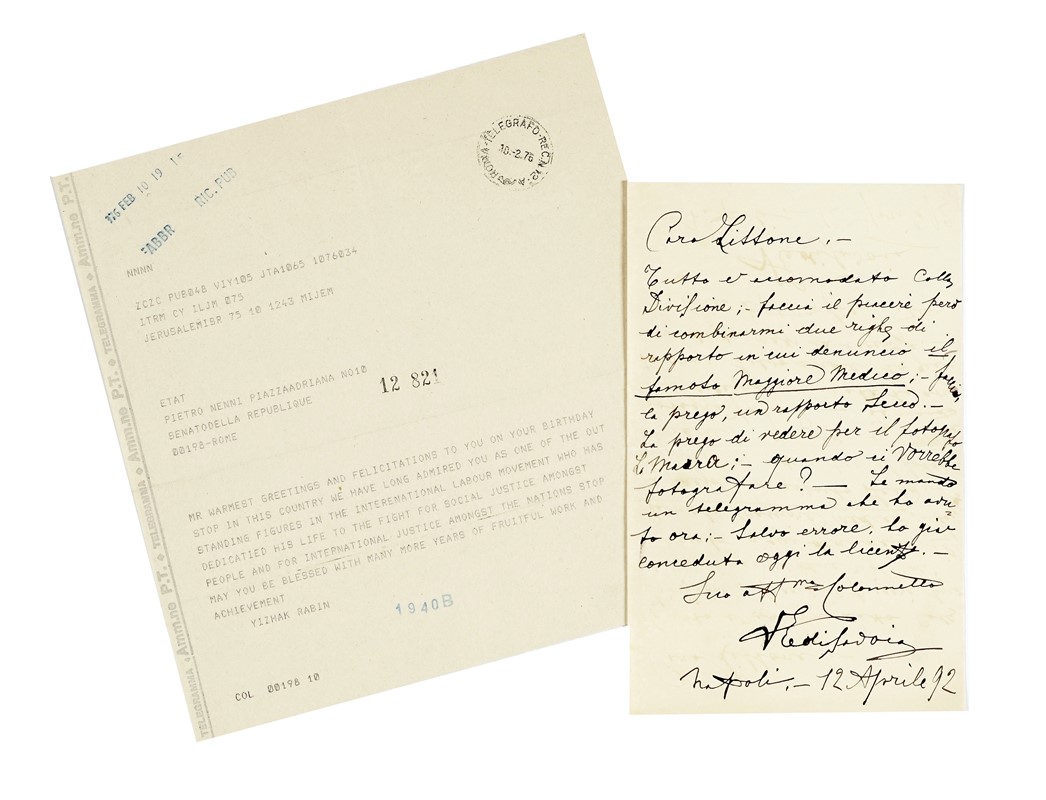 '76 FEB 10 19 1
FABBR RIC. PUB
ROMA-TELEGRAFO-REC.N12.A
10.-2.76
NNNN
ZCIC PUB048 VIY105 JTA1065 1076034
ITRM CY ILJM 075
JERUSALEMISR 75 10 1243 MIJEM
ETAT
PIETRO NENNI PIAZZAADRIANA NO10
SENATODELLA REPUBLIQUE
00198-ROME
12 821
MR WARMEST GREETINGS AND FELICITATIONS TO YOU ON YOUR BIRTHDAY
STOP IN THIS COUNTRY WE HAVE LONG ADMIRED YOU AS ONE OF THE OUT
STANDING FIGURES IN THE INTERNATIONAL LABOUR MOVEMENT WHO HAS
DEDICATIED HIS LIFE TO THE FIGHT FOR SOCIAL JUSTICE AMONGST
PEOPLE AND FOR INTERNATIONAL JUSTICE AMONGST THE NATIONS STOP
MAY YOU BE BLESSED WITH MANY MORE YEARS OF FRUITFUL WORK AND
ACHIEVEMENT
YIZHAK RABIN
1940B
COL 00198 10
TELEGRAMMA ◆ Amm.ne P.T. ◆ TELEGRAMMA ◆ Amm.ne P.T. ◆ TELEGRAMMA ◆ Amm.ne P.T. ◆ TELEGRAMMA ◆ Amm.ne P.T.
Caro Zissone,-
Tutto è accomodato colla
Divisione;- faccia il piacere però
di combinarmi due righe di
rapporto in cui denuncio il
famoso Maggiore Medico;- faccia,
la prego, un rapporto secco.-
La prego di vedere per il fotografo
quando ci vorrebbe
fotografare?- Le mando
un telegramma che ho avu-
to ora;- Salvo errore, ho già
conceduta oggi la licenza.-
Suo aff.mo Colonnello
VEdiSavoia
Napoli,- 12 Aprile 92